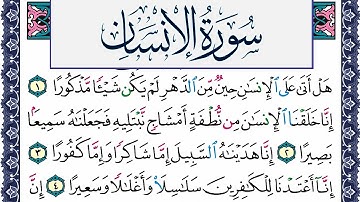 سُورَةُ الإِنسَانِ
هَلْ أَتَىٰ عَلَى ٱلْإِنسَٰنِ حِينٌ مِّنَ ٱلدَّهْرِ لَمْ يَكُن شَيْـًٔا مَّذْكُورًا ١
إِنَّا خَلَقْنَا ٱلْإِنسَٰنَ مِن نُّطْفَةٍ أَمْشَاجٍ نَّبْتَلِيهِ فَجَعَلْنَٰهُ سَمِيعًۢا
بَصِيرًا ٢ إِنَّا هَدَيْنَٰهُ ٱلسَّبِيلَ إِمَّا شَاكِرًا وَإِمَّا كَفُورًا
٣ إِنَّآ أَعْتَدْنَا لِلْكَٰفِرِينَ سَلَٰسِلَا۟ وَأَغْلَٰلًا وَسَعِيرًا ٤ إِنَّ